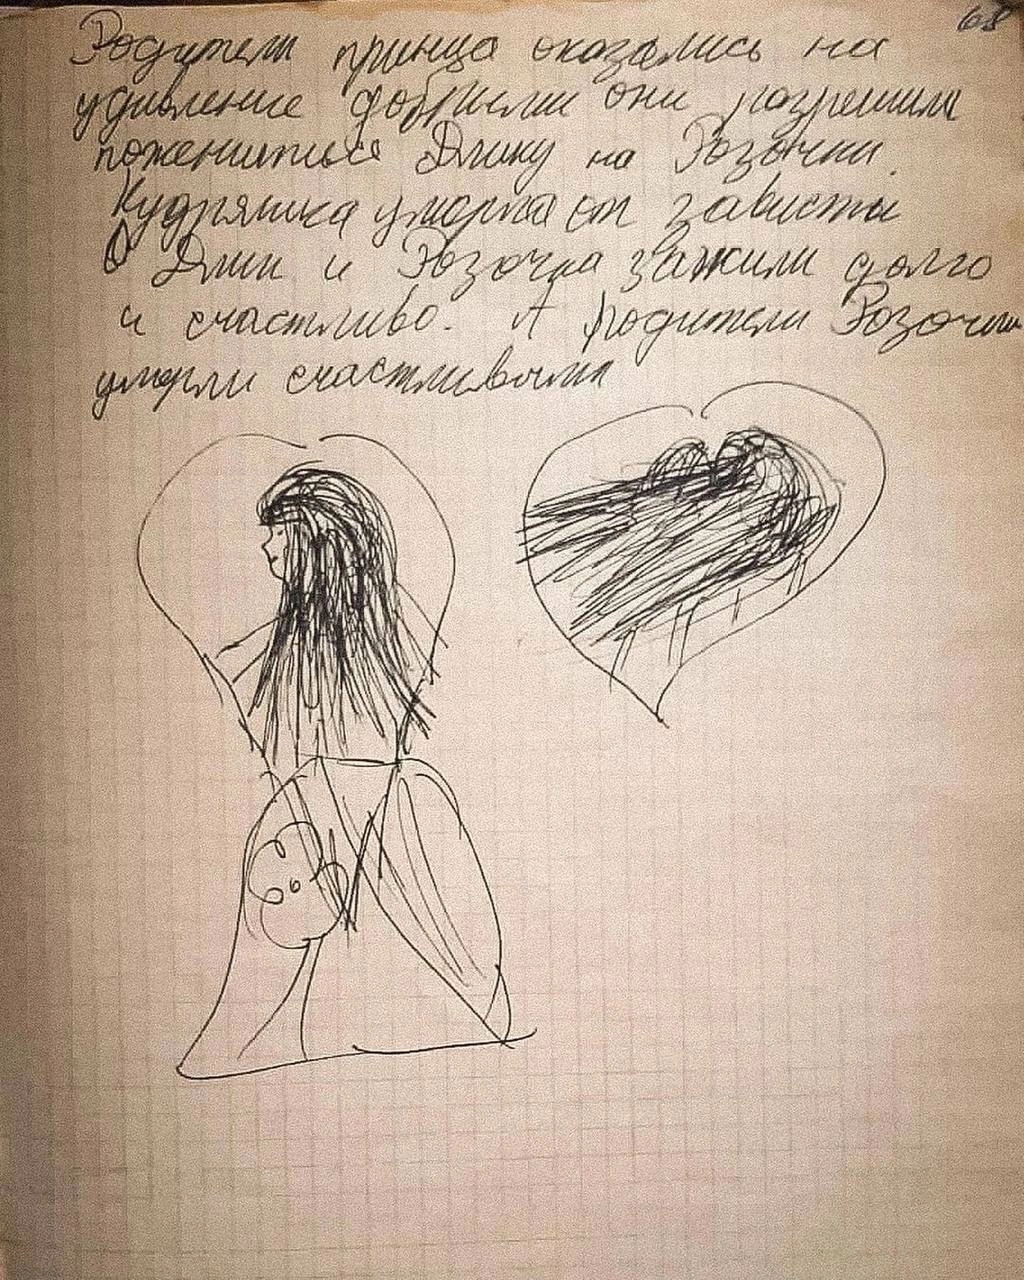 68
Родители принца оказались на
удивление добрыми они разрешили
пожениться Длину на Розочки.
Кудряшка умерла от зависты
О Длин и Розочка зажили долго
и счастливо. А родители Розочки
умерли счастливыми